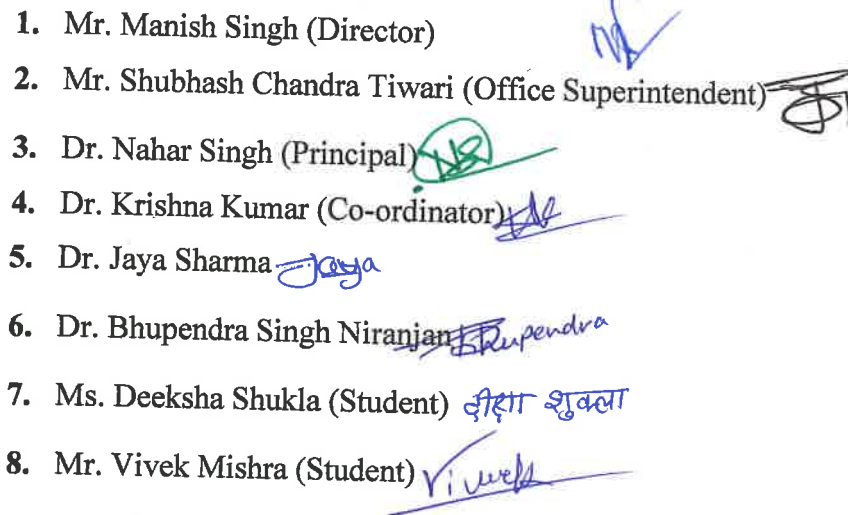 1. Mr. Manish Singh (Director)
2. Mr. Shubhash Chandra Tiwari (Office Superintendent)
3. Dr. Nahar Singh (Principal) NS
4. Dr. Krishna Kumar (Co-ordinator)
5. Dr. Jaya Sharma Jaya
6. Dr. Bhupendra Singh Niranjan Bhupendra
7. Ms. Deeksha Shukla (Student) दीक्षा शुक्ला
8. Mr. Vivek Mishra (Student) Vivek